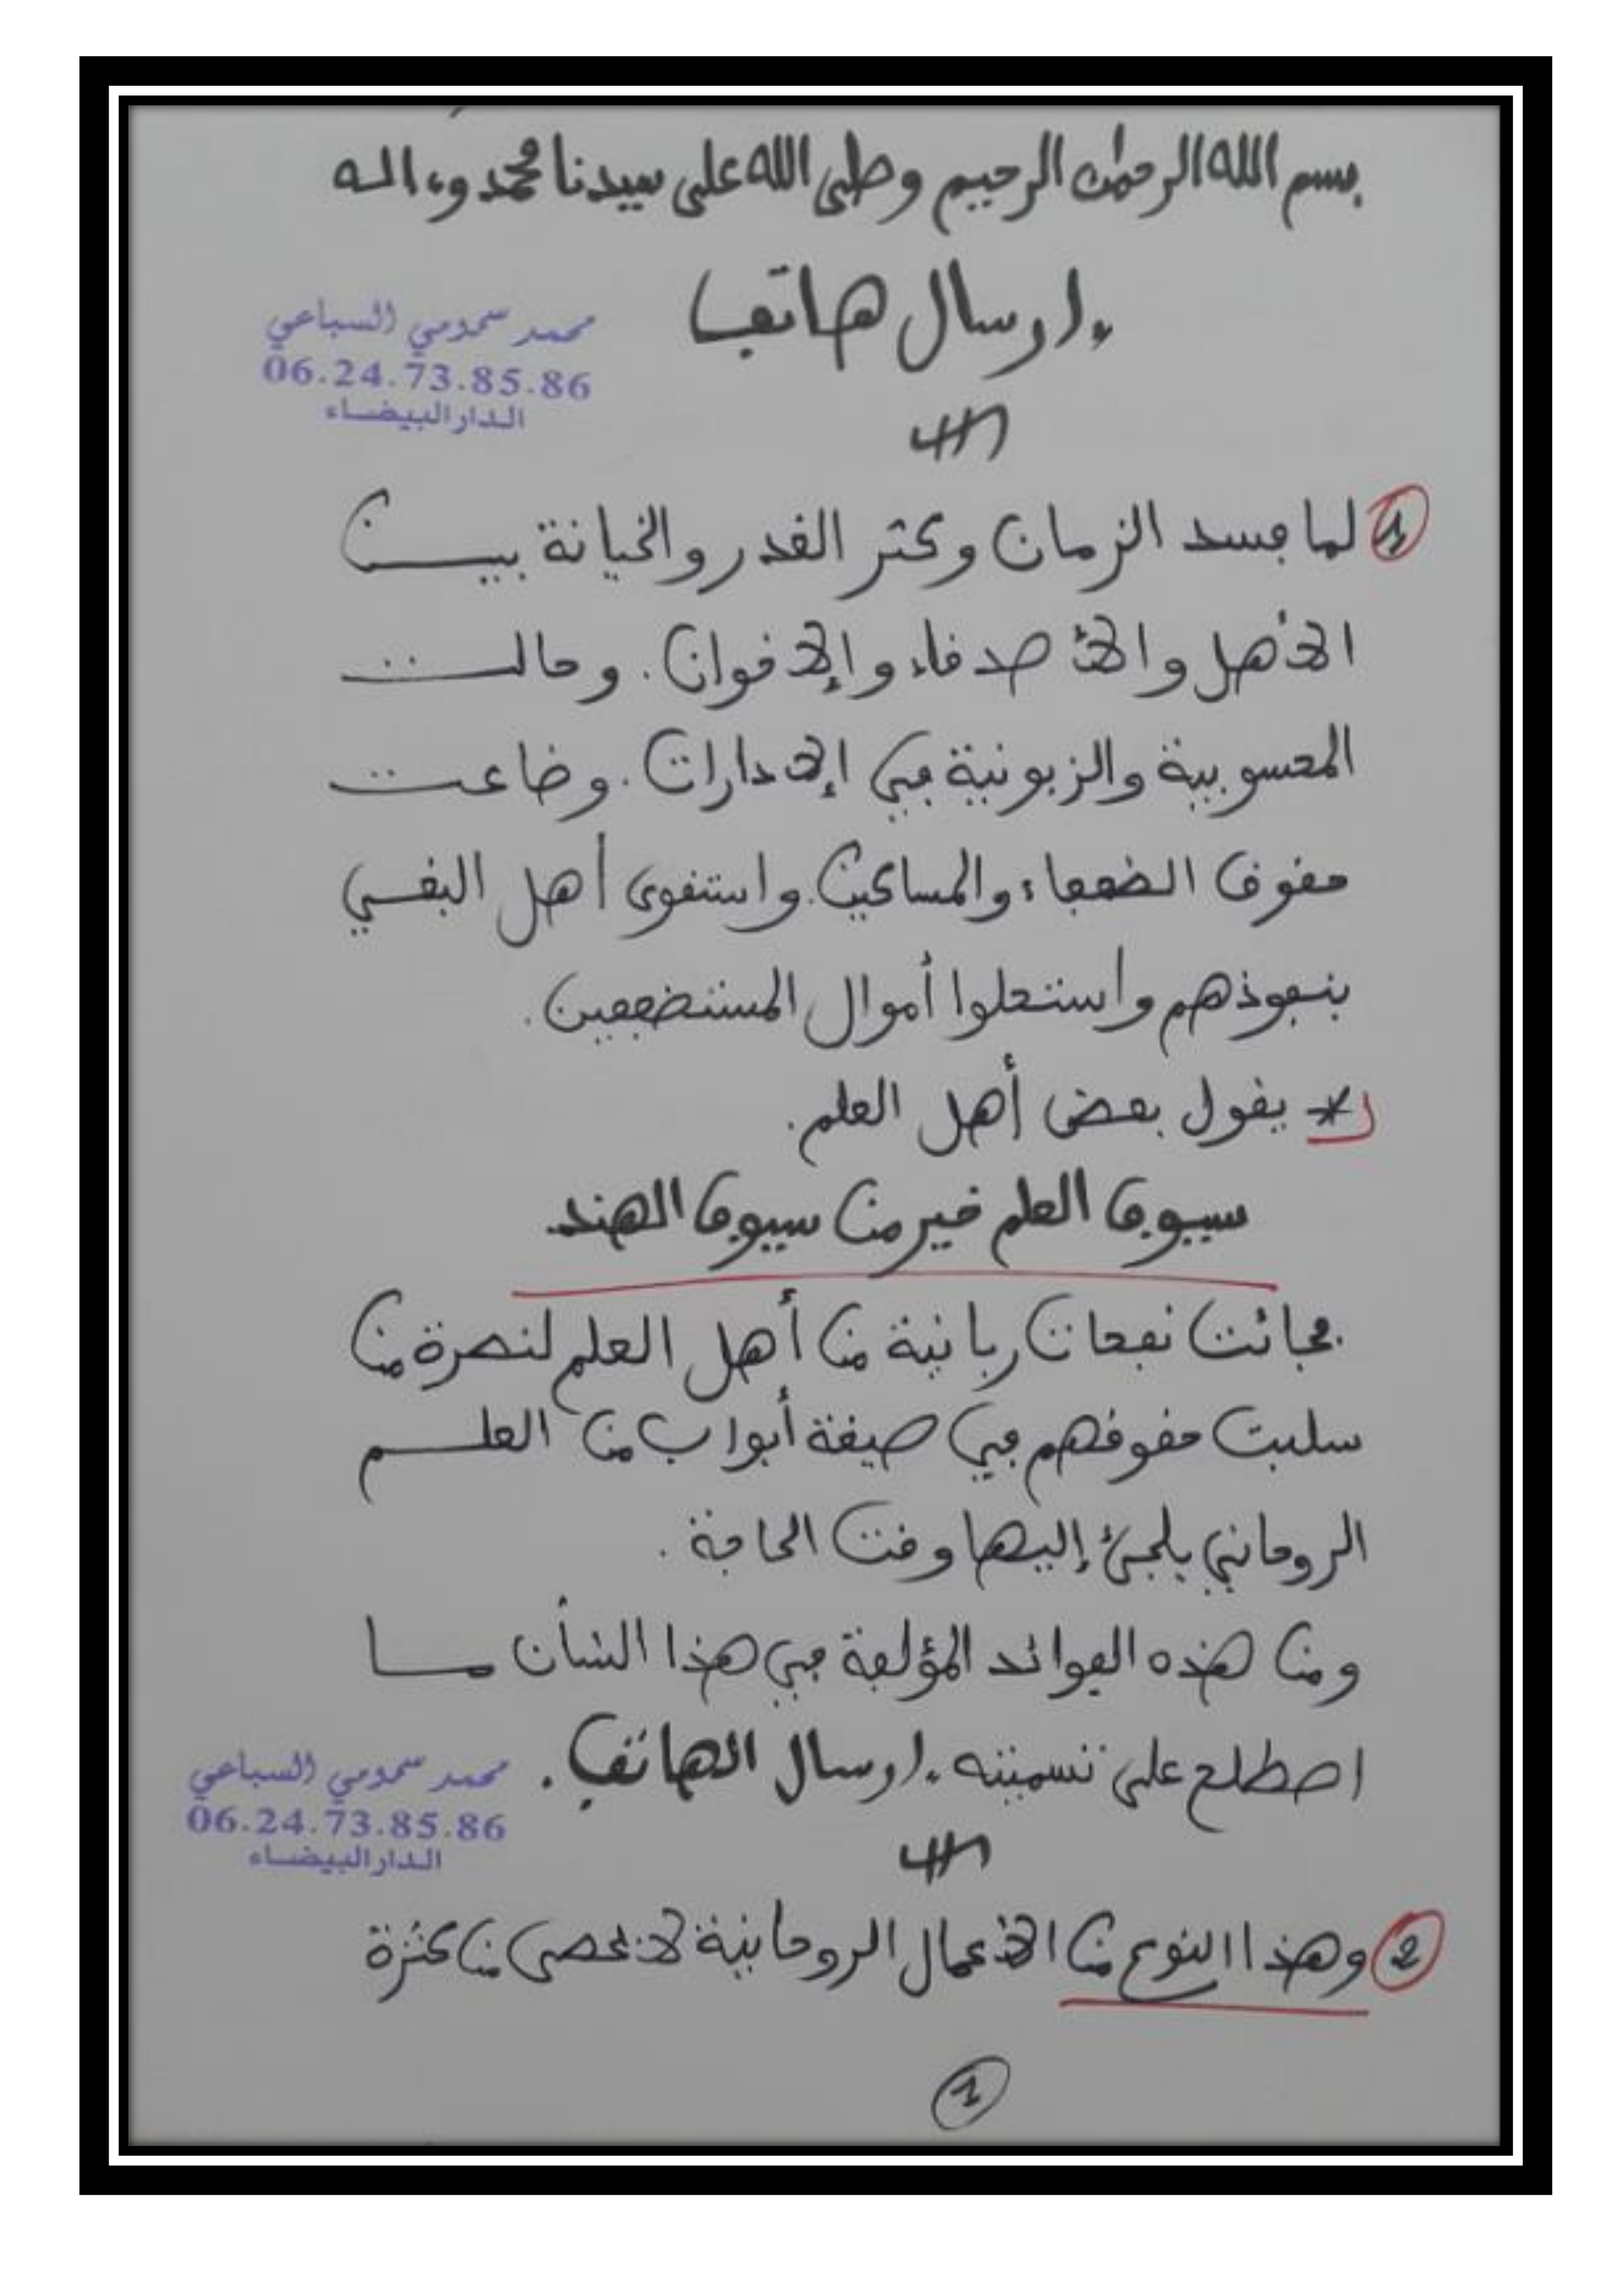 بسم الله الرحمان الرحيم وصلى الله على سيدنا محمد وءاله
إرسال هاتف
محمد سحمومي السباعي
06.24.73.85.86
الدار البيضاء
1 لما فسد الزمان وكثر الغدر والخيانة بين
الأهل والأصدقاء والإخوان. وحالت
المحسوبية والزبونية في الإدارات. وضاعت
حقوق الضعفاء والمساكين. واستقوى أهل البغي
بنفوذهم واستحلوا أموال المستضعفين.
* يقول بعض أهل العلم.
سيوف العلم خير من سيوف الهند.
فجائت نفحات ربانية من أهل العلم لنصرة من
سلبت حقوقهم في صيغة أبواب من العلم
الروحاني يلجئ إليها وقت الحاجة.
ومن هذه الفوائد المؤلفة في هذا الشأن ما
اصطلح على تسميته إرسال الهاتف.
محمد سحمومي السباعي
06.24.73.85.86
الدار البيضاء
2 وهذا النوع من الأعمال الروحانية لا تحصى من كثرة
1